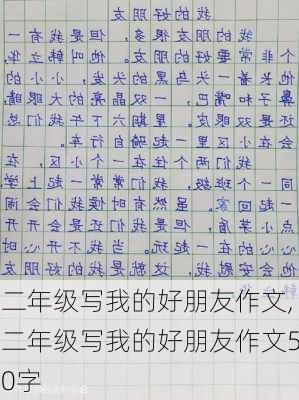 我的好朋友
我的朋友很多，但是我有一
个非常要好的朋友。他叫韩立
他长着一头乌黑的头发，小小的
鼻子和嘴巴，一双晶亮的大眼睛
还是双眼皮。星期六下午我们总
会在小区里一起骑自行车。
我们两个住在一个小区，在
同一个班级，我们常常一起上学，
一起回家。虽然有时候我们会闹
点小矛盾，但是我们还是会开开
心心的在一起玩。当我不开心时
他会安慰我，这就是我的好朋友
二年级写我的好朋友作文,
二年级写我的好朋友作文5
0字